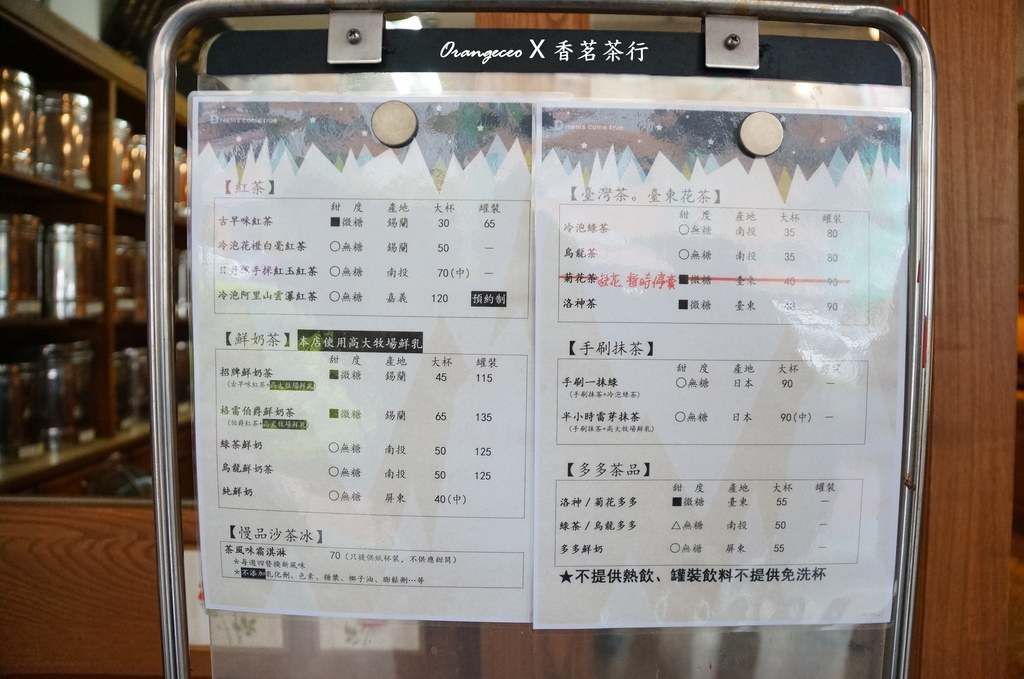 Orangeceo X 香茗茶行
Dreams come true
【紅茶】
甜 度 產地 大杯 罐裝
古早味紅茶 ■微糖 錫蘭 30 65
冷泡花橙白毫紅茶 ○無糖 錫蘭 50 —
日月潭手採紅玉紅茶 ○無糖 南投 70(中) —
冷泡阿里山雲瀑紅茶 ○無糖 嘉義 120 預約制
【鮮奶茶】本店使用高大牧場鮮乳
甜 度 產地 大杯 罐裝
招牌鮮奶茶 ■微糖 錫蘭 45 115
(古早味紅茶+高大牧場鮮乳)
格雷伯爵鮮奶茶 ■微糖 錫蘭 65 135
(伯爵紅茶+高大牧場鮮乳)
綠茶鮮奶 ○無糖 南投 50 125
烏龍鮮奶茶 ○無糖 南投 50 125
純鮮奶 ○無糖 屏東 40(中)
【慢品沙茶冰】
茶風味霜淇淋 70 (只提供紙杯裝，不供應甜筒)
★每週四替換新風味
★不添加乳化劑、色素、糖漿、椰子油、膨鬆劑…等
Dreams come true
【臺灣茶。臺東花茶】
甜 度 產地 大杯 罐裝
冷泡綠茶 ○無糖 南投 35 80
烏龍茶 ○無糖 南投 35 80
菊花茶 暫時停賣 ■微糖 臺東 40 90
洛神茶 ■微糖 臺東 40 90
【手刷抹茶】
甜 度 產地 大杯 罐裝
手刷一抹綠 ○無糖 日本 90 —
(手刷抹茶+冷泡綠茶)
半小時雷芽抹茶 ○無糖 日本 90(中) —
(手刷抹茶+高大牧場鮮乳)
【多多茶品】
甜 度 產地 大杯 罐裝
洛神/菊花多多 ■微糖 臺東 55 —
綠茶/烏龍多多 △無糖 南投 50 —
多多鮮奶 ○無糖 屏東 55 —
★不提供熱飲、罐裝飲料不提供免洗杯